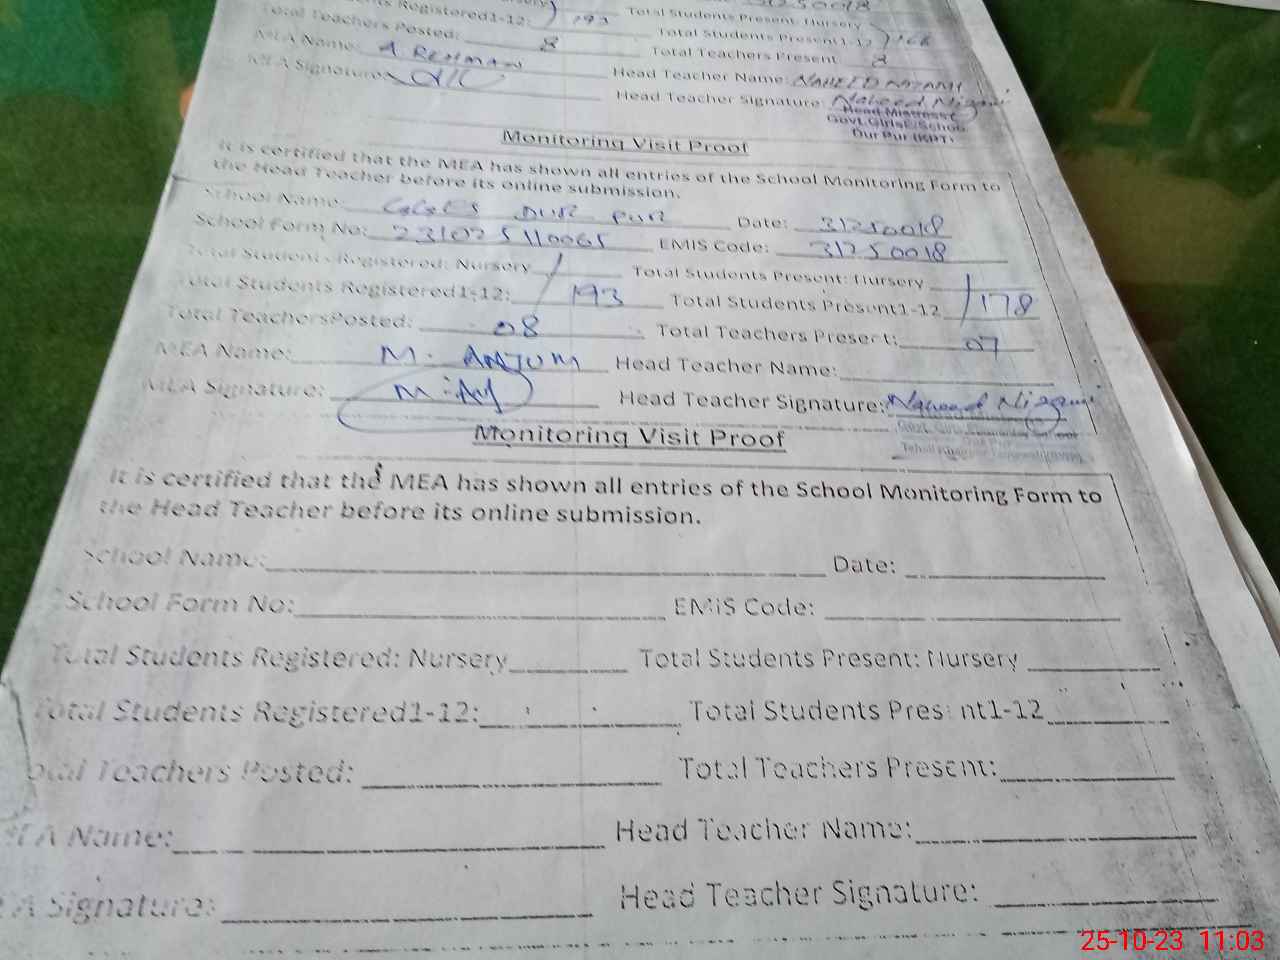 31250018
Students Registered1-12: 193 Total Students Present: Nursery
Total Students Present1-12 168
Total Teachers Posted: 8 Total Teachers Present 8
MEA Name: A. REHMAN Head Teacher Name: NAHEED NIZAMI
MEA Signature: Head Teacher Signature: Naheed Nizami
Head Mistress
Govt. Girls E/School
Dur Pur (KPT)
Monitoring Visit Proof
It is certified that the MEA has shown all entries of the School Monitoring Form to
the Head Teacher before its online submission.
School Name: GGES DUR PUR Date: 31250018
School Form No: 231025110065 EMIS Code: 31250018
Total Students Registered: Nursery / Total Students Present: Nursery /
Total Students Registered1-12: 193 Total Students Present1-12 178
Total TeachersPosted: 08 Total Teachers Present: 07
MEA Name: M. ANJUM Head Teacher Name:
MEA Signature: Head Teacher Signature: Naheed Nizami
Monitoring Visit Proof
It is certified that the MEA has shown all entries of the School Monitoring Form to
the Head Teacher before its online submission.
School Name: Date:
School Form No: EMIS Code:
Total Students Registered: Nursery Total Students Present: Nursery
Total Students Registered1-12: Total Students Present1-12
Total Teachers Posted: Total Teachers Present:
MEA Name: Head Teacher Name:
MEA Signature: Head Teacher Signature:
25-10-23 11:03